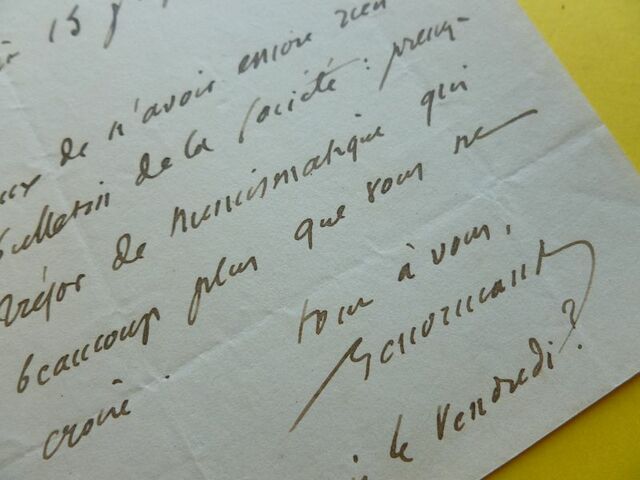 15
de n'avoir encore rien
bulletin de la Société : pren-
trésor de numismatique qui
beaucoup plus que vous ne
croire.
tout à vous,
Lenormant
le vendredi ?